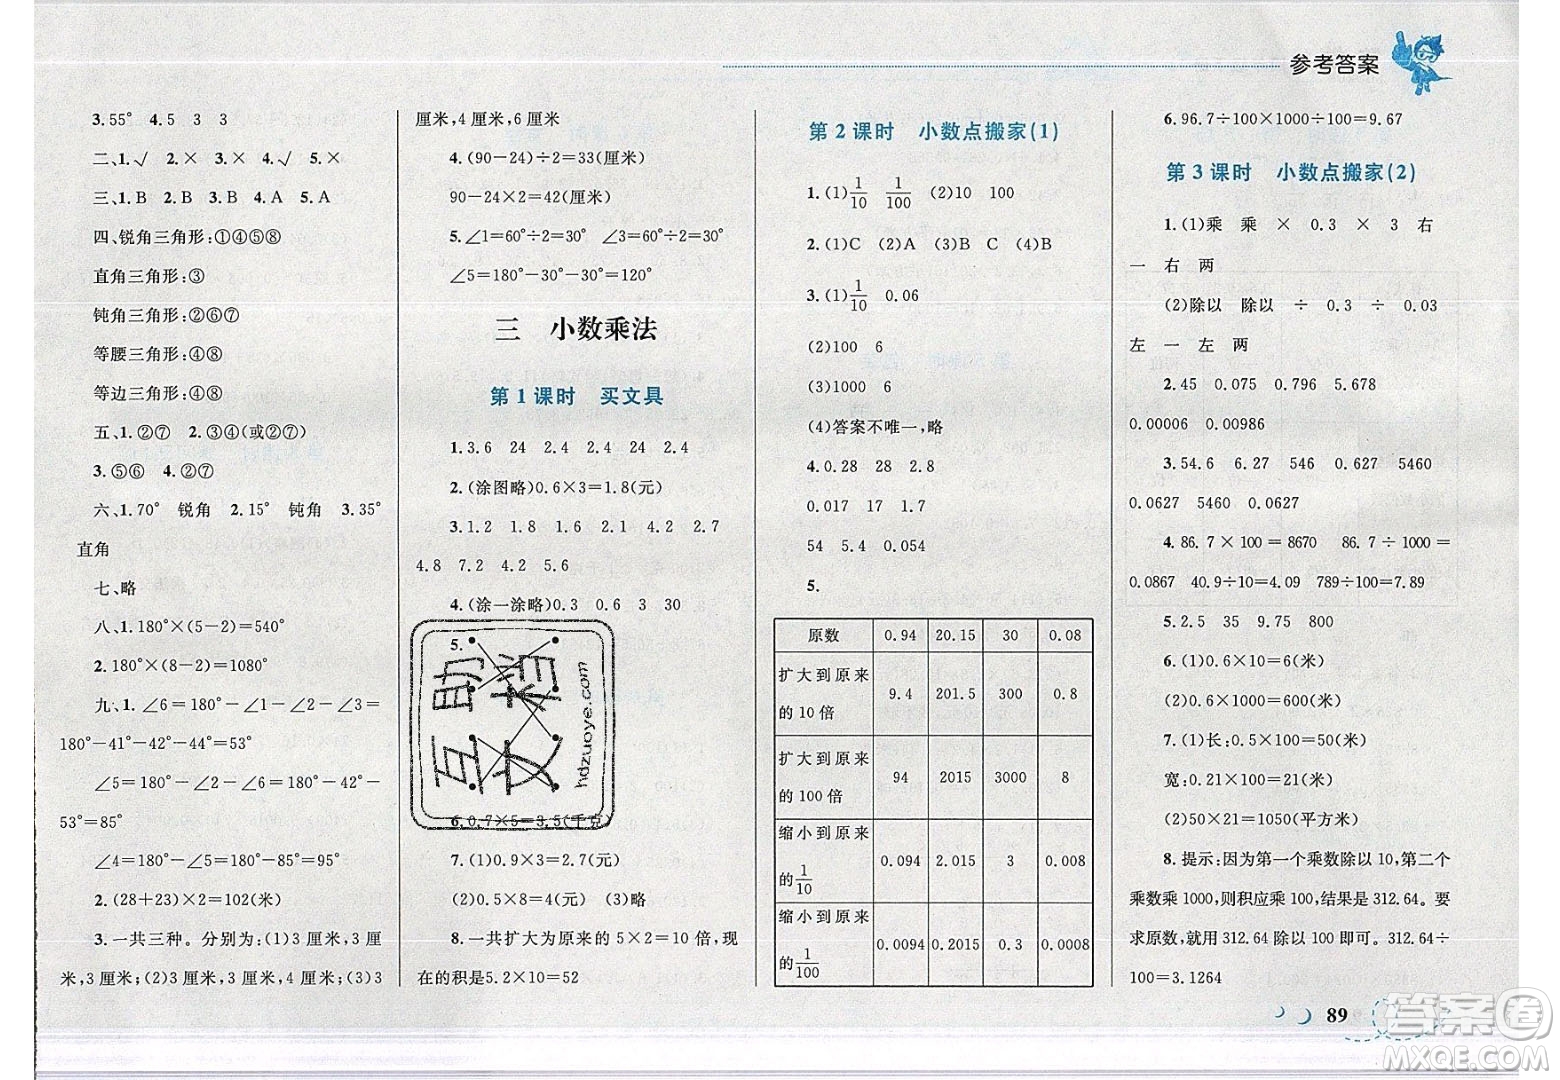 参考答案
3.55° 4.5 3 3
二、1.√ 2.× 3.× 4.√ 5.×
三、1.B 2.B 3.B 4.A 5.A
四、锐角三角形:①④⑤⑧
直角三角形:③
钝角三角形:②⑥⑦
等腰三角形:④⑧
等边三角形:④⑧
五、1.②⑦ 2.③④(或②⑦)
3.⑤⑥ 4.②⑦
六、1.70° 锐角 2.15° 钝角 3.35°
直角
七、略
八、1.180°×(5-2)=540°
2.180°×(8-2)=1080°
九、1.∠6=180°-∠1-∠2-∠3=
180°-41°-42°-44°=53°
∠5=180°-∠2-∠6=180°-42°-
53°=85°
∠4=180°-∠5=180°-85°=95°
2.(28+23)×2=102(米)
3.一共三种。分别为:(1)3厘米,3厘
米,3厘米;(2)3厘米,3厘米,4厘米;(3)3
厘米,4厘米,4厘米
4.(90-24)÷2=33(厘米)
90-24×2=42(厘米)
5.∠1=60°÷2=30° ∠2=60°÷2=30°
∠5=180°-30°-30°=120°
三 小数乘法
第1课时 买文具
1.3.6 24 2.4 24 24 2.4
2.(涂图略)0.6×3=1.8(元)
3.1.2 1.8 1.6 2.1 4.2 2.7
4.8 7.2 4.2 5.6
4.(涂一涂略)0.3 0.6 3 30
5.
互助文档
hdzuoye.com
6.0.7×5=3.5(千克)
7.(1)0.9×3=2.7(元)
(2)0.5×8=4(元) (3)略
8.一共扩大为原来的5×2=10倍,现
在的积是5.2×10=52
第2课时 小数点搬家(1)
1.(1)1/10 1/100 (2)10 100
2.(1)C (2)A (3)B C (4)B
3.(1)1/10 0.06
(2)100 6
(3)1000 6
(4)答案不唯一,略
4.0.28 28 2.8
0.017 17 1.7
54 5.4 0.054
5.
原数 0.94 20.15 30 0.08
扩大到原来的10倍 9.4 201.5 300 0.8
扩大到原来的100倍 94 2015 3000 8
缩小到原来的1/10 0.094 2.015 3 0.008
缩小到原来的1/100 0.0094 0.2015 0.3 0.0008
6.96.7÷100×1000÷100=9.67
第3课时 小数点搬家(2)
1.(1)乘 乘 × 0.3 × 3 右
一 右 两
(2)除以 除以 ÷ 0.3 ÷ 0.03
左 一 左 两
2.45 0.075 0.796 5.678
0.00006 0.00986
3.54.6 6.27 546 0.627 5460
0.0627 5460 0.0627
4.86.7×100=8670 86.7÷1000=
0.0867 40.9÷10=4.09 789÷100=7.89
5.2.5 35 9.75 800
6.(1)0.6×10=6(米)
(2)0.6×1000=600(米)
7.(1)长:0.5×100=50(米)
宽:0.21×100=21(米)
(2)50×21=1050(平方米)
8.提示:因为第一个乘数除以10,第二个
乘数乘1000,则积应乘100,结果是312.64。要
求原数,就用312.64除以100即可。312.64÷
100=3.1264
89
答案圈
MXQE.COM